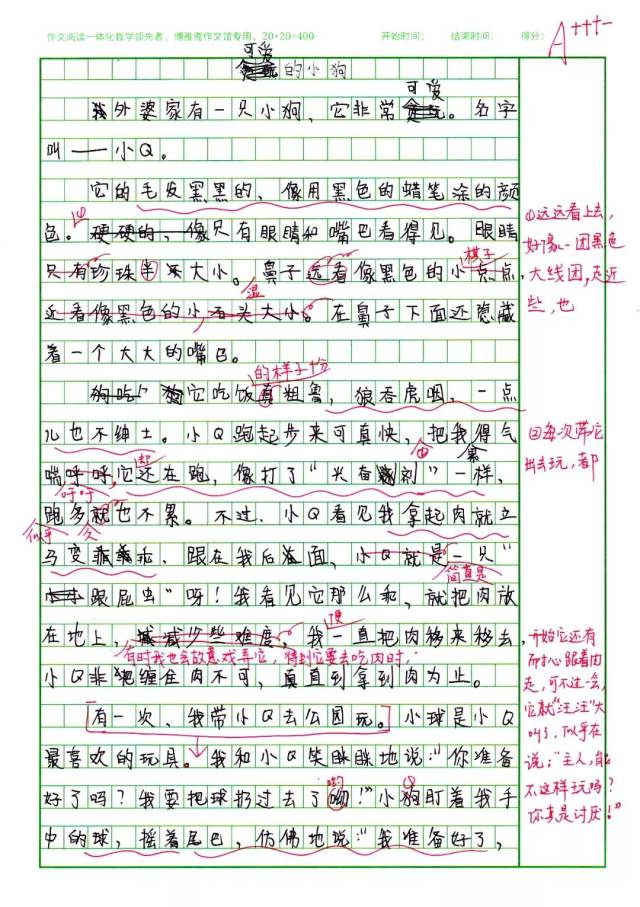 作文阅读一体化教学领先者，博雅斋作文馆专用，20×20=400 开始时间： 结束时间： 得分：
A+++-
可爱
的小狗
我外婆家有一只小狗，它非常可爱。名字
叫——小Q。
它的毛发黑黑的、像用黑色的蜡笔涂的颜
色。①硬硬的，像只有眼睛和嘴巴看得见。眼睛
只有珍珠半大小。鼻子远看像黑色的小点点，
棋子
近看像黑色的小石头大小。在鼻子下面还隐藏
湿
着一个大大的嘴巴。
的样子十份
狗吃它吃饭真粗鲁，狼吞虎咽，一点
儿也不绅士。小Q跑起步来可真快，把我得气
喘呼呼，它还在跑，像打了“兴奋剂”一样，
吁吁
跑多就也不累。不过，小Q看见我拿起肉就立
似乎
久
马变乖乖，跟在我后面，小Q就是一只“
简直是
跟屁虫”呀！我看见它那么乖，就把肉放
在地上，减少些难度，我一直把肉移来移去，
便
有时我也会故意戏弄它，得到它要去吃肉时，
小Q非把缠住肉不可，真直到拿到肉为止。
有一次，我带小Q去公园玩。小球是小Q
最喜欢的玩具。我和小Q笑眯眯地说：“你准备
好了吗？我要把球扔过去了呦！”小狗盯着我手
中的球，摇着尾巴，仿佛地说：“我准备好了，
①远远看上去，
好像一团黑色
大线团，走近
些，也
②每次带它
出去玩，都
开始它还有
耐心跟着肉
走，可不过一会，
它就“汪汪”大
叫了，似乎在
说：“主人，能
不这样玩吗？
你真是讨厌！”